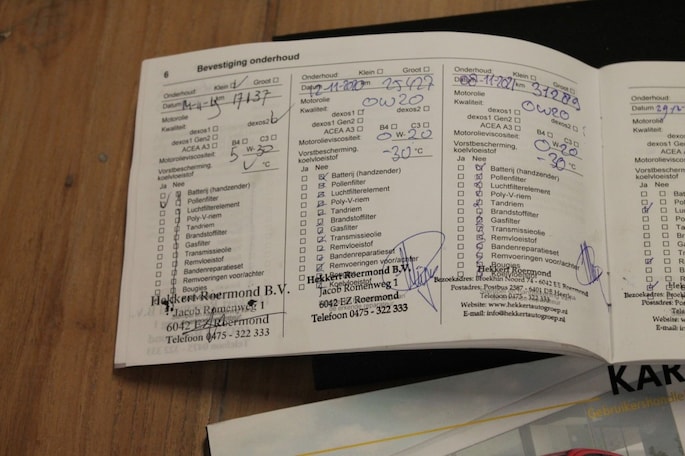 6 Bevestiging onderhoud
Onderhoud: Klein Groot
Datum km 17137
Motorolie
Kwaliteit: dexos1 dexos2
dexos1 Gen2
ACEA A3 B4 C3
Motorolieviscositeit: 5 W-30
Vorstbescherming, koelvloeistof °C
Ja Nee
Batterij (handzender)
Pollenfilter
Luchtfilterelement
Poly-V-riem
Tandriem
Brandstoffilter
Gasfilter
Transmissieolie
Remvloeistof
Bandenreparatieset
Remvoeringen voor/achter
Bougies
Hekkert Roermond B.V.
Jacob Romenweg 1
6042 EZ Roermond
Telefoon 0475 - 322 333
Onderhoud: Klein Groot
Datum 12-11-2020 km 25427
Motorolie OW20
Kwaliteit: dexos1 dexos2
dexos1 Gen2
ACEA A3 B4 C3
Motorolieviscositeit: 0 W-20
Vorstbescherming, koelvloeistof -30 °C
Ja Nee
Batterij (handzender)
Pollenfilter
Luchtfilterelement
Poly-V-riem
Tandriem
Brandstoffilter
Gasfilter
Transmissieolie
Remvloeistof
Bandenreparatieset
Remvoeringen voor/achter
Koelvloeistof
Hekkert Roermond B.V.
Jacob Romenweg 1
6042 EZ Roermond
Telefoon 0475 - 322 333
Onderhoud: Klein Groot
Datum km 31289
Motorolie OW20
Kwaliteit: dexos1 dexos2
dexos1 Gen2
ACEA A3 B4 C3
Motorolieviscositeit: 0 W-20
Vorstbescherming, koelvloeistof -30 °C
Ja Nee
Batterij (handzender)
Pollenfilter
Luchtfilterelement
Poly-V-riem
Tandriem
Brandstoffilter
Gasfilter
Transmissieolie
Remvloeistof
Bandenreparatieset
Remvoeringen voor/achter
Hekkert Roermond
Telefoon 0475 - 322 333
Website: www.hekkertautogroep.nl
E-mail: info@hekkertautogroep.nl
Onderhoud:
Datum
Motorolie
Kwaliteit:
Ja Nee
Bezoekadres:
Postadres:
KAR